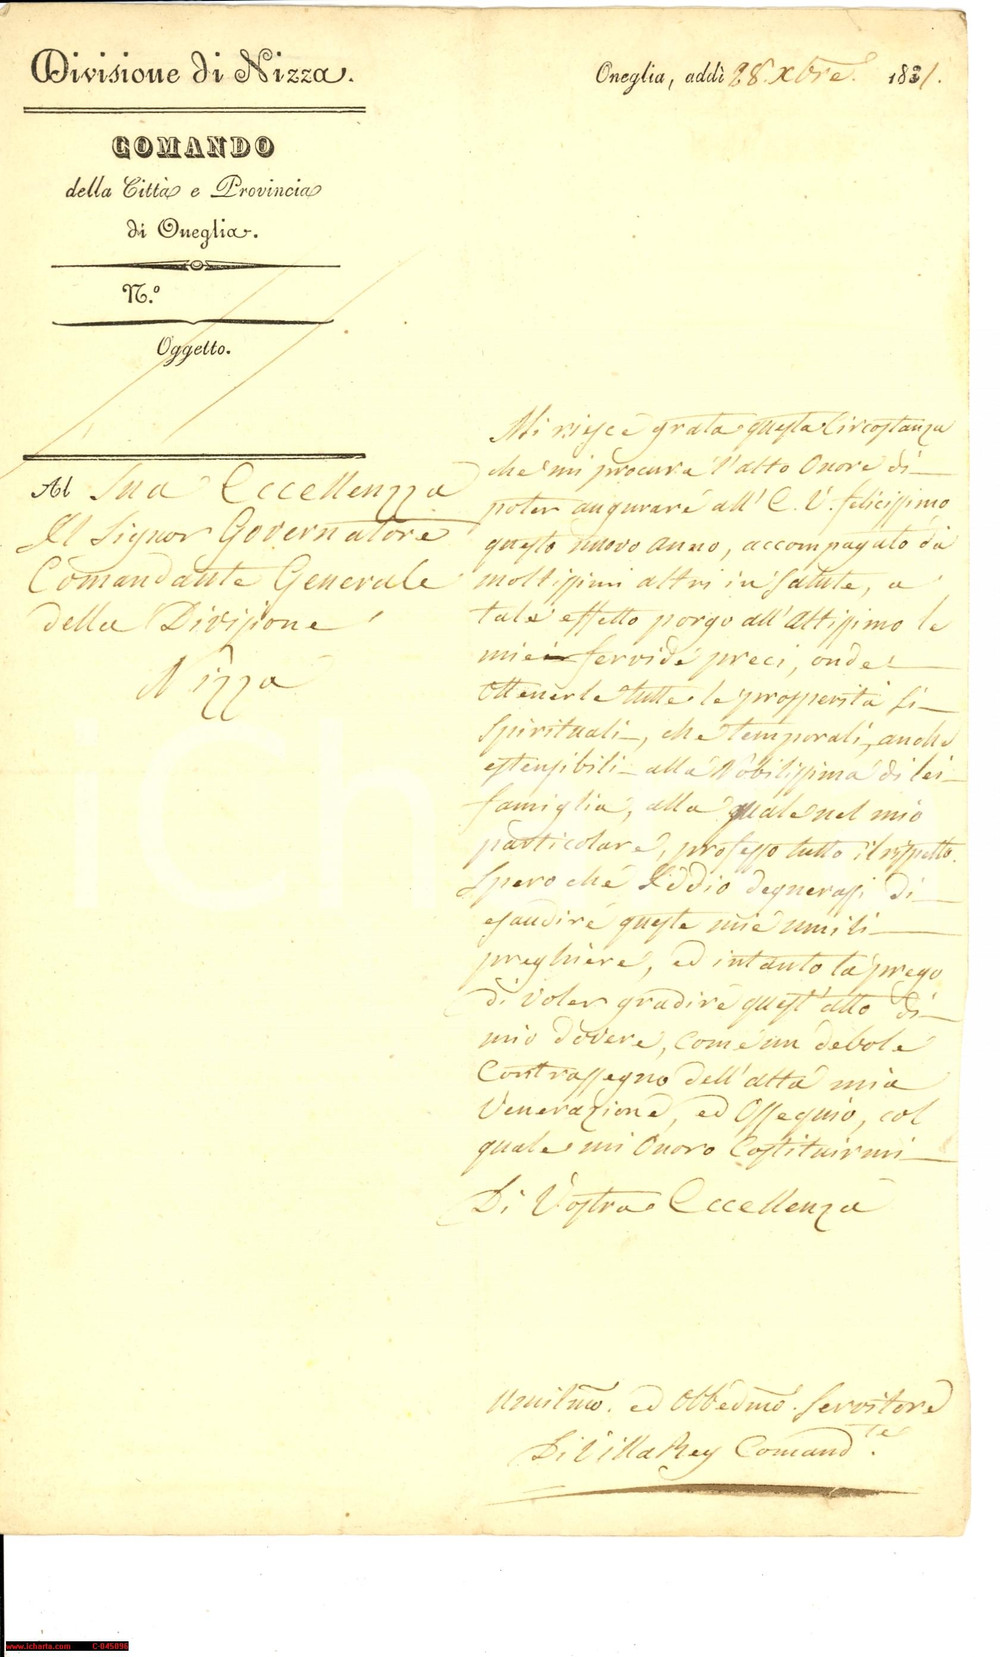 Divisione di Nizza.
COMANDO
della Città e Provincia
di Oneglia.
N.º
Oggetto.
Oneglia, addì 28 Xbre. 1831.
Al Sua Eccellenza
Il Signor Governatore
Comandante Generale
della Divisione
Nizza
Mi riesce grata questa Circostanza
che mi procura l'alto Onore di
poter augurare all'E. V. felicissimo
questo nuovo anno, accompagnato da
moltissimi altri in Salute, a
tale effetto porgo all'Altissimo le
mie fervide preci, onde
Ottenerle tutte le prosperità si
spirituali, che temporali, anche
estensibili alla Nobilissima di lei
famiglia, alla quale nel mio
particolare, professo tutto il rispetto.
Spero che Iddio degnerassi di
esaudire queste mie umili
preghiere, ed intanto la prego
di voler gradire quest'atto di
mio dovere, come un debole
Contrassegno dell'alta mia
Venerazione, ed Ossequio, col
quale mi Onoro Costituirmi
Di Vostra Eccellenza
Umilmo. ed Obbedmo. Servitore
Di Villa Rey Comand.te
www.icharta.com C-045096